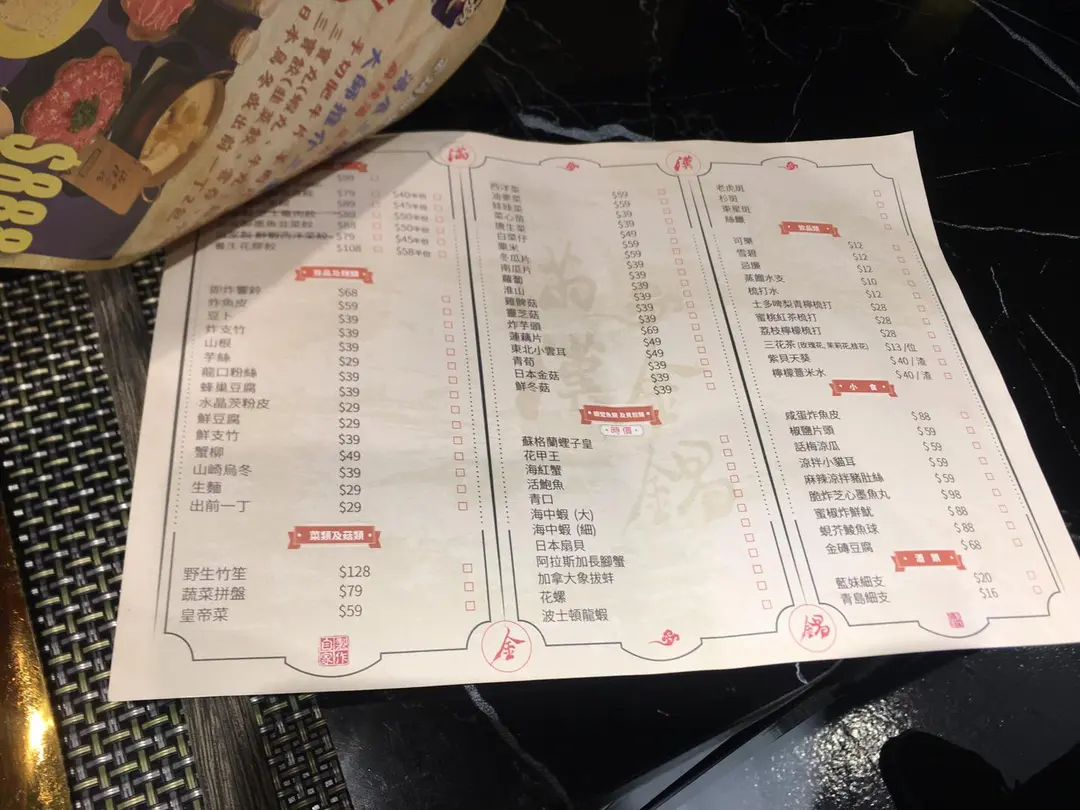 滿
漢
$99
$79 $40半份
$89 $45半份
$89 $50半份
$88 $50半份
$79 $45半份
養生花膠餃 $108 $58半份
即炸響鈴 $68
炸魚皮 $59
豆卜 $39
炸支竹 $39
山根 $39
芋絲 $29
龍口粉絲 $39
蜂巢豆腐 $39
水晶茨粉皮 $29
鮮豆腐 $29
鮮支竹 $39
蟹柳 $49
山崎烏冬 $39
生麵 $29
出前一丁 $29
菜類及菇類
野生竹笙 $128
蔬菜拼盤 $79
皇帝菜 $59
自家製作
西洋菜 $59
油麥菜 $59
娃娃菜 $39
菜心苗 $39
唐生菜 $49
白菜仔 $59
粟米 $39
冬瓜片 $39
南瓜片 $39
蘿蔔 $39
淮山 $39
雞髀菇 $39
靈芝菇 $39
炸芋頭 $69
蓮藕片 $49
東北小雲耳 $49
青筍 $39
日本金菇 $39
鮮冬菇 $39
時價
蘇格蘭蟶子皇
花甲王
海紅蟹
活鮑魚
青口
海中蝦 (大)
海中蝦 (細)
日本扇貝
阿拉斯加長腳蟹
加拿大象拔蚌
花螺
波士頓龍蝦
金
老虎斑
杉斑
東星斑
絲䱽
飲品類
可樂 $12
雪碧 $12
忌廉 $12
蒸餾水支 $10
梳打水 $12
士多啤梨青檸梳打 $28
蜜桃紅茶梳打 $28
荔枝檸檬梳打 $28
三花茶 (玫瑰花, 茉莉花, 桂花) $13 /位
紫貝天葵 $40 / 渣
檸檬薏米水 $40 / 渣
小食
咸蛋炸魚皮 $88
椒鹽片頭 $59
話梅涼瓜 $59
涼拌小貓耳 $59
麻辣涼拌豬肚絲 $59
脆炸芝心墨魚丸 $98
蜜椒炸鮮魷 $88
蜆芥鯪魚球 $88
金磚豆腐 $68
酒類
藍妹細支 $20
青島細支 $16
鍋